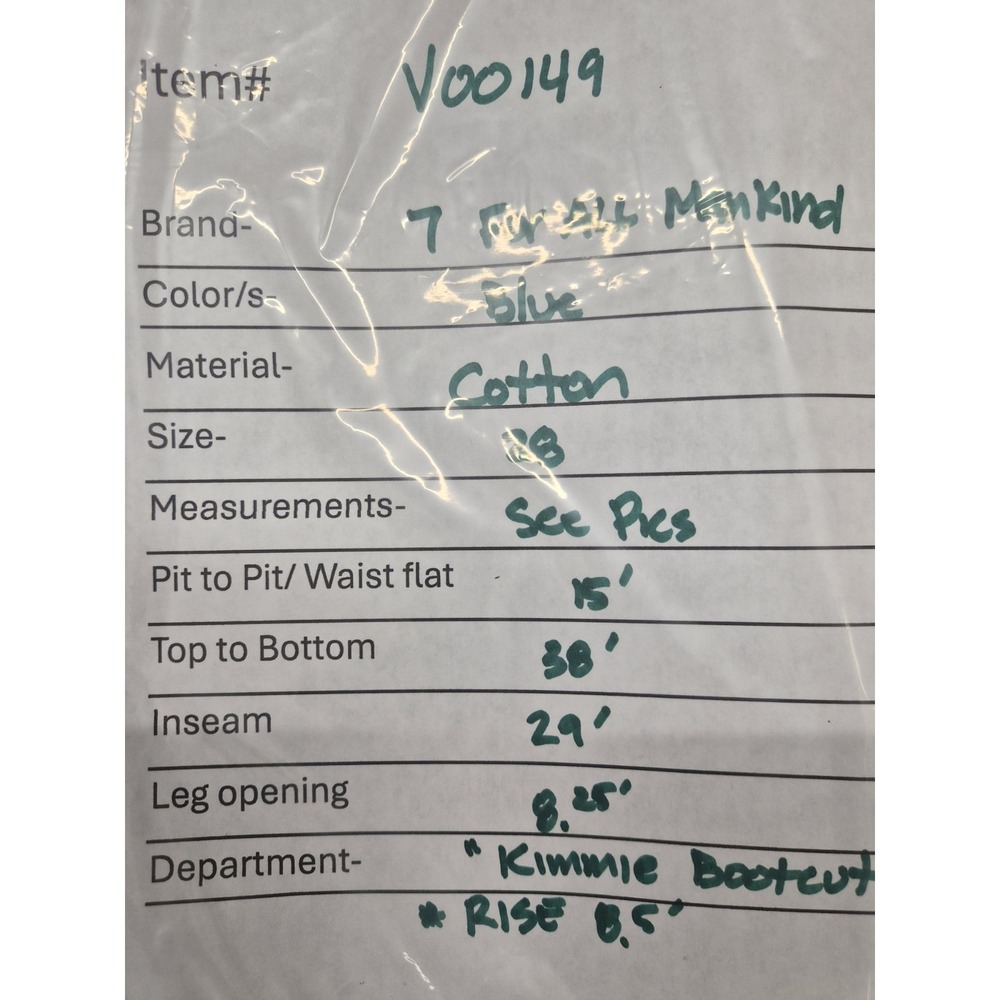 Item# V00149
Brand- 7 For All Mankind
Color/s- Blue
Material- Cotton
Size- 28
Measurements- See Pics
Pit to Pit/ Waist flat 15'
Top to Bottom 38'
Inseam 29'
Leg opening 8.25'
Department- " Kimmie Bootcut
* RISE 8.5'